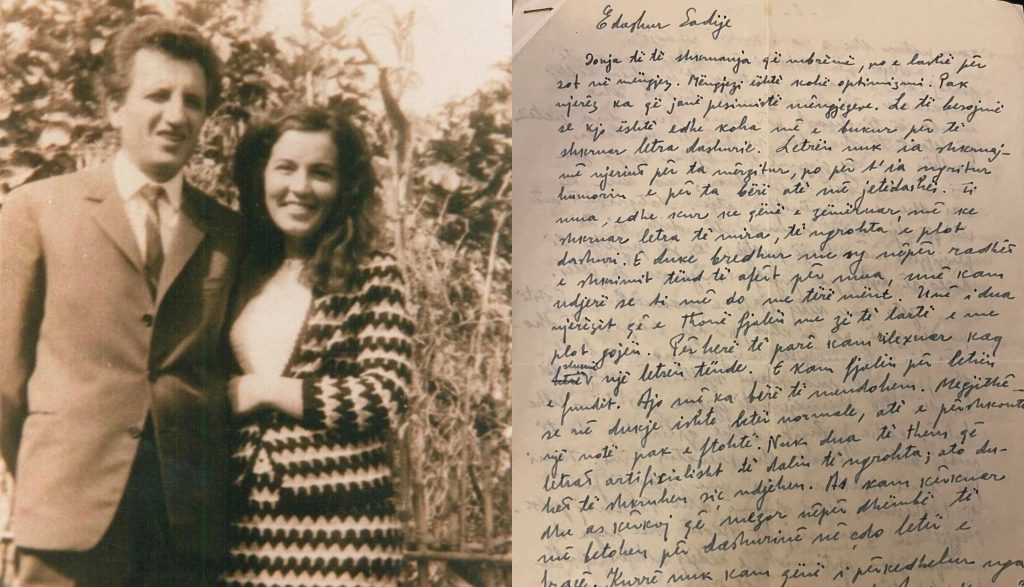 E dashur Sadije
Donja të të shkruanja që mbrëmë, po e lashë për
sot në mëngjes. Mëngjesi është kohë optimizmi. Pak
njerëz ka që janë pesimistë mëngjeseve. Le të besojmë
se kjo është edhe koha më e bukur për të
shkruar letra dashurie. Letrën nuk ia shkruaj-
më njeriut për ta mërzitur, po për t'ia ngritur
humorin e për ta bërë atë më jetëdashës. Ti
mua, edhe kur ke qënë e zëmëruar, më ke
shkruar letra të mira, të ngrohta e plot
dashuri. E duke bredhur me sy nëpër radhët
e shkrimit tënd të afërt për mua, unë kam
ndjerë se ti më do me tërë mënt. Unë i dua
njerëzit që e thonë fjalën me zë të lartë e me
plot gojën. Për herë të parë kam rilexuar kaq
shumë një letrën tënde. E kam fjalën për letrën
e fundit. Ajo më ka bërë të mendohem. Megjithë-
se në dukje ishte letër normale, atë e përshkonte
një notë pak e ftohtë. Nuk dua të them që
letrat artificialisht të dalin të ngrohta; ato du-
het të shkruhen siç ndjehen. As kam kërkuar
dhe as kërkoj që mezor nëpër dhëmbë të
më betohen për dashurinë në çdo letër e
Kurrë nuk kam qënë i përkëdhelur nga